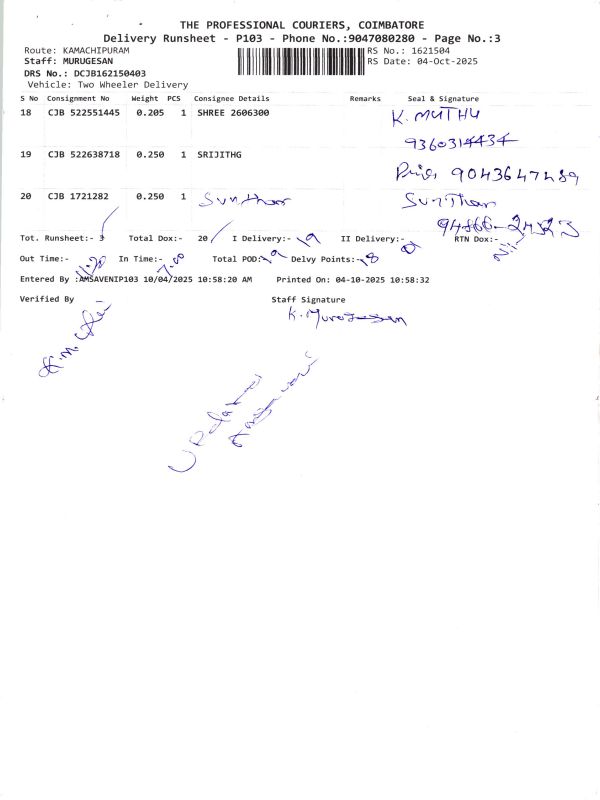 THE PROFESSIONAL COURIERS, COIMBATORE
Delivery Runsheet - P103 - Phone No.:9047080280 - Page No.:3
Route: KAMACHIPURAM
RS No.: 1621504
Staff: MURUGESAN
RS Date: 04-Oct-2025
DRS No.: DCJB162150403
Vehicle: Two Wheeler Delivery
S No Consignment No Weight PCS Consignee Details Remarks Seal & Signature
18 CJB 522551445 0.205 1 SHREE 2606300 K. MUTHU
9360314434
19 CJB 522638718 0.250 1 SRIJITHG
9043647489
20 CJB 1721282 0.250 1 Sunthar SunThar
94866-
Tot. Runsheet:- 3 Total Dox:- 20 I Delivery:- 19 II Delivery:- RTN Dox:- Nil
Out Time:- 11.20 In Time:- 7.00 Total POD:- 19 Delvy Points:- 18
Entered By :AMSAVENIP103 10/04/2025 10:58:20 AM Printed On: 04-10-2025 10:58:32
Verified By Staff Signature
K. Murugesan